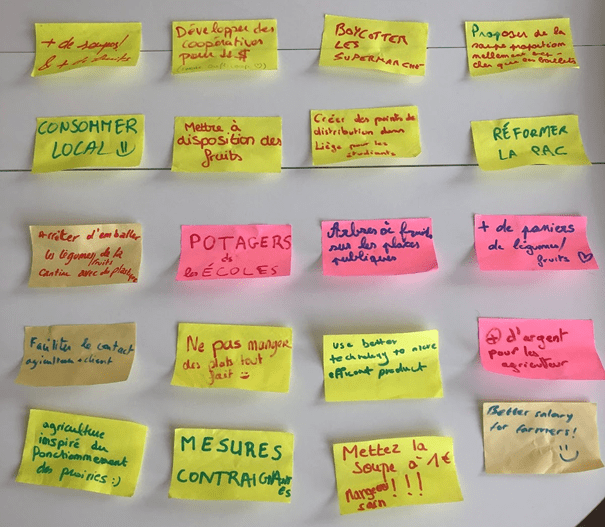 + de soupes!
& + de fruits
Développer des
coopératives
pour le $
BOYCOTTER
LES
SUPERMARCHÉ
Proposer de la
soupe proportion
nellement
cher que
CONSOMMER
LOCAL
Mettre à
disposition des
fruits
Créer des points de
distribution dans
Liège pour les
étudiants
RÉFORMER
LA PAC
Arrêter d'emballer
les légumes/fruits de la
cantine avec du plastique
POTAGERS
ds
les ÉCOLES
Arbres à fruits
sur les places
publiques
+ de paniers
de légumes/
fruits
Faciliter le contact
agriculteur client
Ne pas manger
des plats tout
fait
Use better
technology to more
efficent product
+ d'argent
pour les
agriculteur
agriculture
inspiré du
fonctionnement
des prairies :)
MESURES
CONTRAIGNANTES
Mettez la
soupe à 1€
Mangeons
sain !!!
Better salary
for farmers!